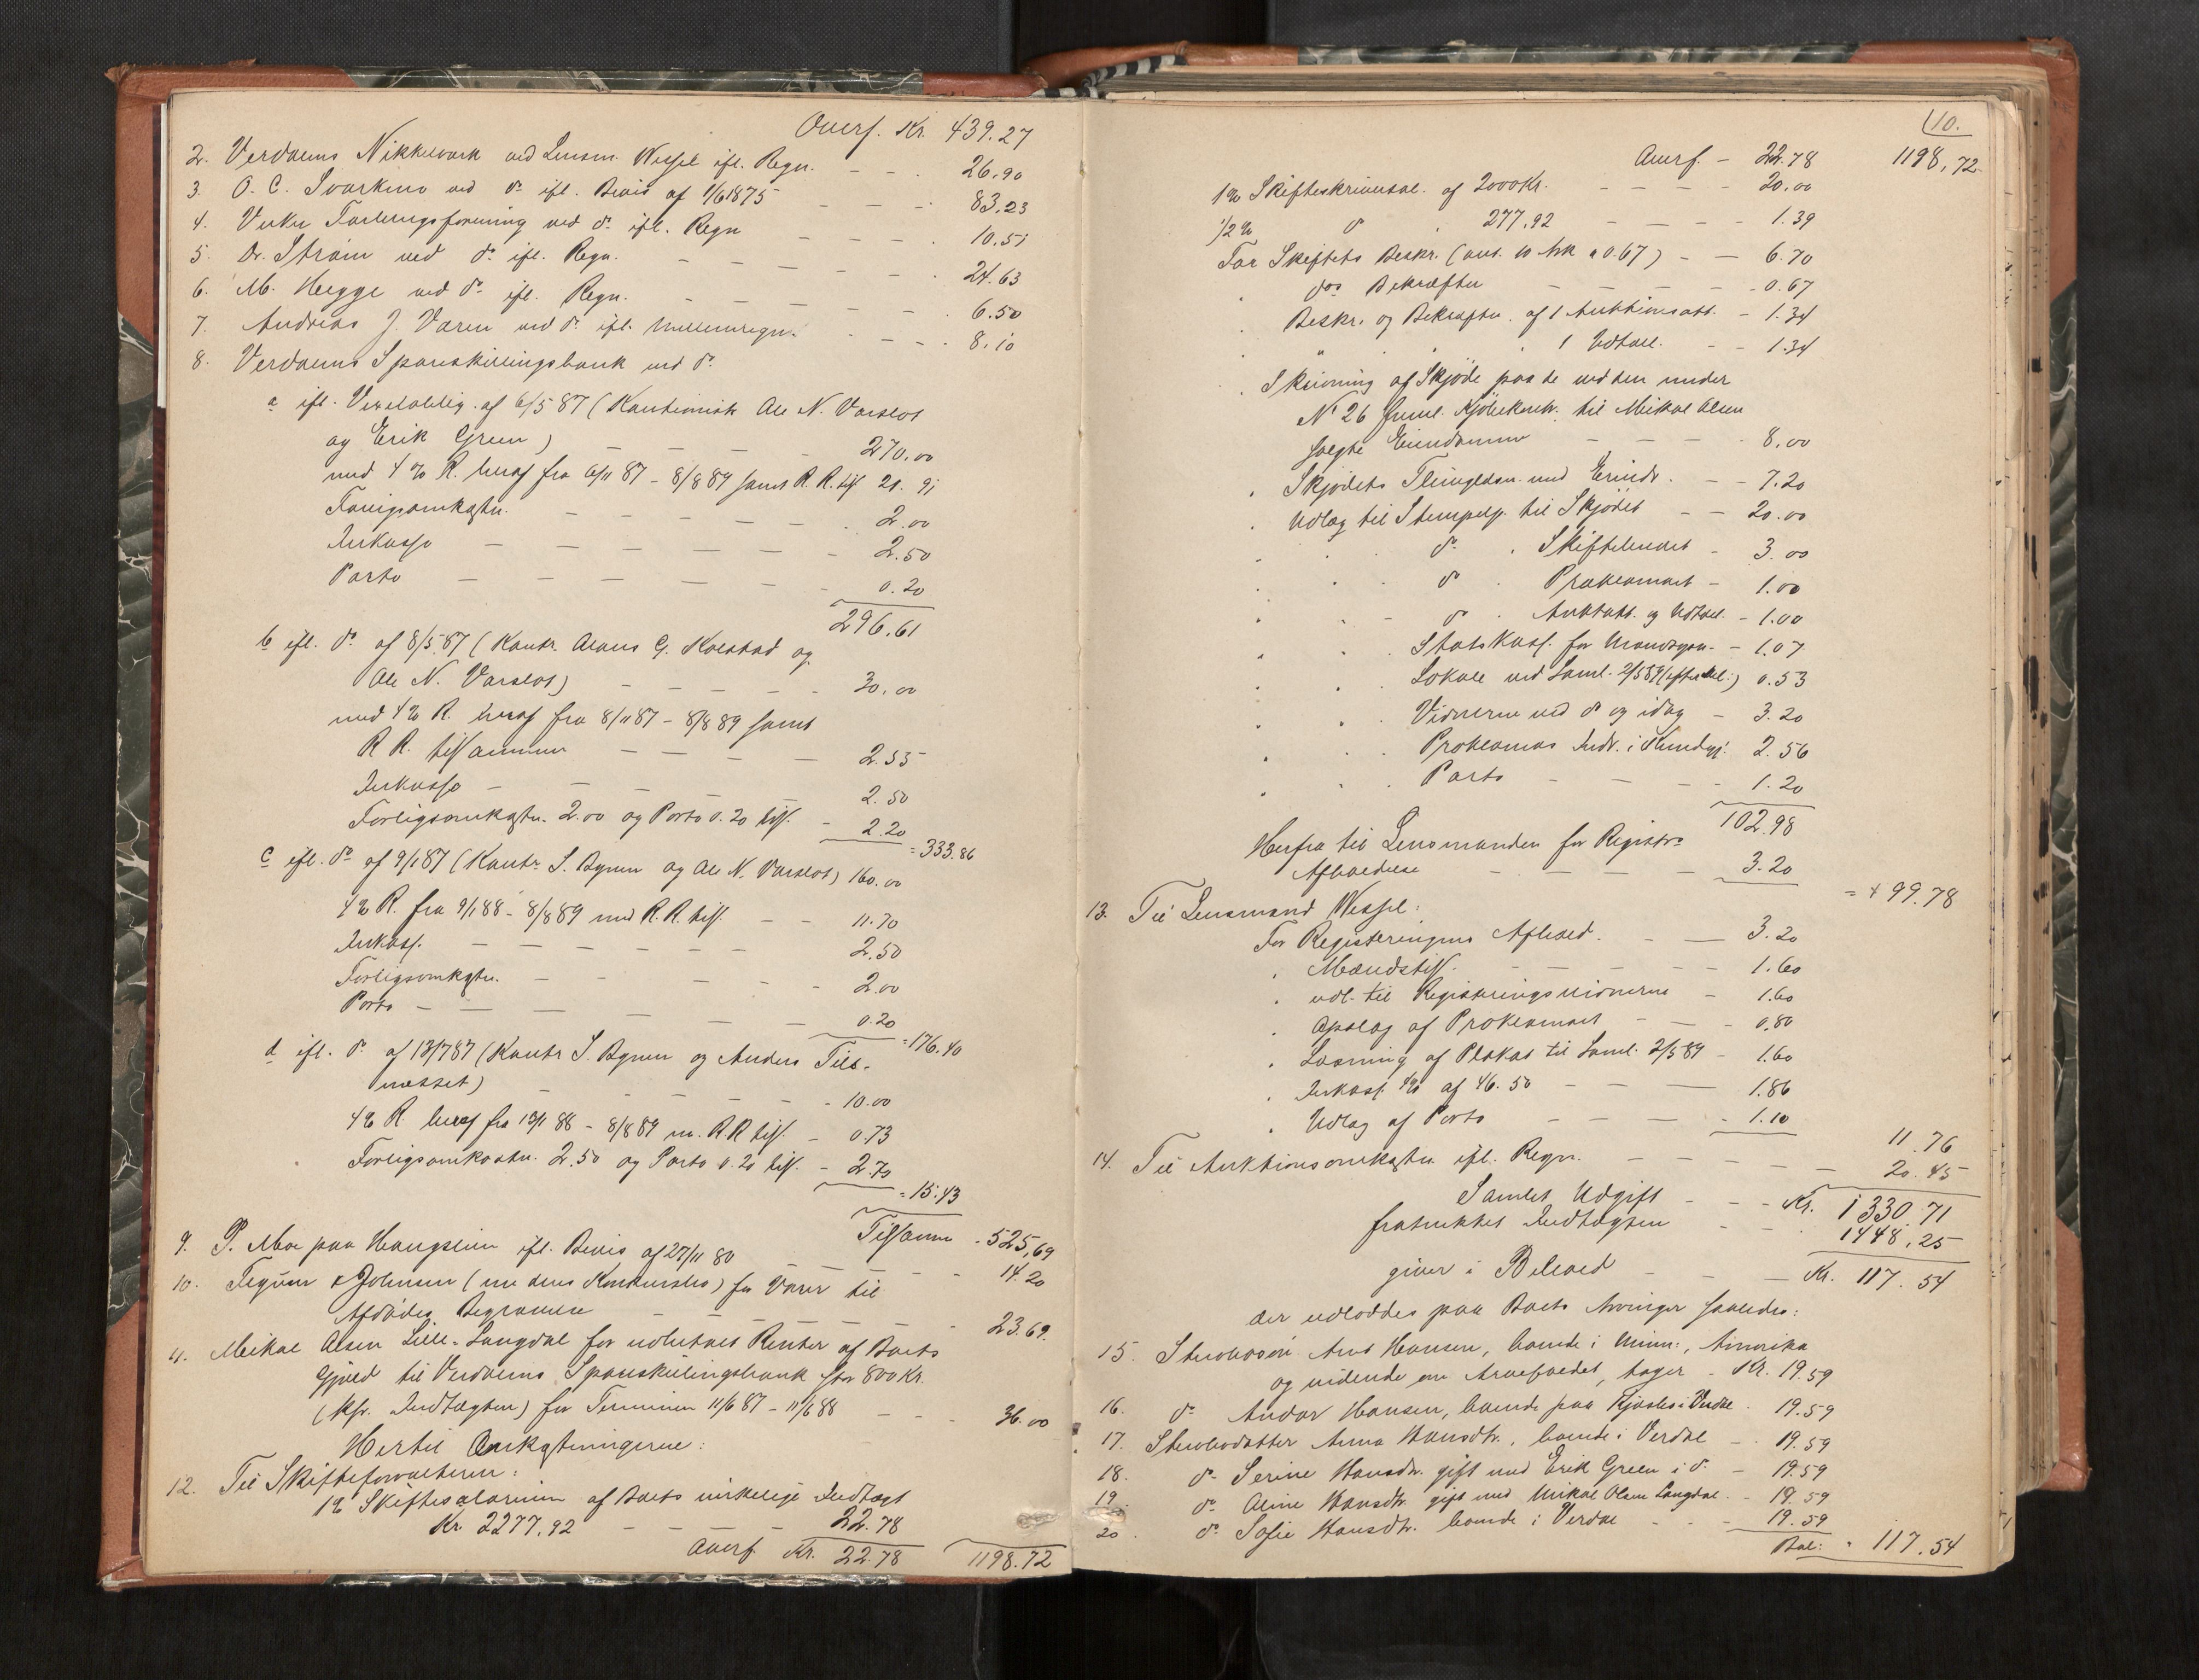 Overf. Kr. 439.27
2. Verdalens Nikkelværk ved Lensm. Wessel ifl. Regn. 26.90
3. O. C. ved do ifl. Bevis af 1/6 1875 83.23
4. Forbrugsforening ved do ifl. Regn 10.51
5. Dr. Strøm ved do ifl. Regn. 24.63
6. M. Hegge ved do ifl. Regn. 6.50
7. Andreas J. Væren ved do ifl. Mellemregn. 8.10
8. Verdalens Spareskillingsbank ved do
a ifl. Vexeloblig. af 6/5 87 (Kautionister Ole N. Varslot
og Erik Green) 270.00
med 4 % R. heraf fra 6/11 87 - 8/8 89 samt R. R. tils 21.91
Forligsomkostn. 2.00
Inkasso 2.50
Porto 0.20
296.61
b ifl. do af 8/5 87 (Kautr. G. Kolstad og
Ole N. Varslot) 30.00
med 4 % R. heraf fra 8/11 87 - 8/8 89 samt
R R. tilsammen 2.55
Inkasso 2.50
Forligsomkostn. 2.00 og Porto 0.20 tils. 2.20 = 333.86
c ifl. do af 9/1 87 (Kautr. S. Bynen og Ole N. Varslot) 160.00
4 % R. fra 9/1 88 - 8/8 89 med R. R. tils. 11.70
Inkass. 2.50
Forligsomkostn. 2.00
Porto 0.20 = 176.40
d ifl. do af 13/7 87 (Kautr S. Bynen og Anders Tils-
næsset) 10.00
4 % R heraf fra 13/1 88 - 8/8 89 m. R.R tils. 0.73
Forligsomkostn. 2.50 og Porto 0.20 tils. 2.70
= 15.43
Tilsamm 525,69
9. P. Moe paa Haugslien ifl. Bevis af 27/11 80 14.20
10. & Johnsen (nu deres Konkursbo) for Varer til
Afdødes Begravelse 23.69.
11. Mikal Olsen Lille-Langdal for udbetalt Renter af Boets
Gjæld til Verdalens Spareskillingsbank stor 800 Kr.
(kfr. Indtægten) for Terminen 11/6 87 - 11/6 88 36.00
Hertil Omkostningerne:
12. Til Skifteforvalteren:
1 % Skiftesalarium af Boets virkelige Indtægt
Kr 2277.92 22.78
Overf. Kr. 22.78 1198.72
10.
Overf. 22.78 1198,72.
1 % Skifteskriversal. af 2000 Kr. 20.00
1/2 % do 277.92 1.39
For Skiftets Beskr. (ans. 10 Ark a 0.67) 6.70
" dos Bekræftn 0.67
" Beskr. og Bekræftn. af 1 Auktionsatt. 1.34
" " 1 Udtæl. 1.34
" Skrivning af Skjøde paa de ved den under
No 26 freml. Kjøbekontr. til Mikal Olsen
solgte Eiendomme 8.00
" Skjødets Thinglæsn. med Erindr. 7.20
" Udlæg til Stempelp. til Skjødet 20.00
" " do " Skiftebrevet 3.00
" " do " Proklamaet 1.00
" " do " Auktatt. og Udtæl. 1.00
" " Statskass. for 1.07
" " Lokale ved Saml. 2/5 89 (efter del:) 0.53
" " Vidnerne ved do og idag 3.20
" " Proklamas Indr. i Kundgj. 2.56
" " Porto 1.20
102.98
Herfra til Lensmanden for Registrs
Afholdelse 3.20
= 99.78
13. Til Lensmand Wessel:
For Registreringens Afhold. 3.20
" Mændstils. 1.60
" udl. til Registreringsvidnerne 1.60
" Opslag af Proklamaet 0.80
" Læsning af Plakat til Saml. 2/5 89 1.60
" Inkass. 4 % af 46.50 1.86
" Udlæg af Porto 1.10
11.76
14. Til Auktionsomkostn ifl. Regn. 20.45
Samlet Udgift Kr. 1330.71
fratrukket Indtægten 1448,25
giver i Behold Kr. 117.54
der udloddes paa Boets Arvinger saaledes:
15. Sterbosøn Arnt Hansen, boende i Minn:, Amerika
og vidende om Arvefaldet, tager Kr. 19.59
16. do Andor Hansen, boende paa i Verdal 19.59
17. Sterbodatter Anna Hansdtr., boende i Verdal 19.59
18. do Serine Hansdtr. gift med Erik Green i do 19.59
19. do Oline Hansdtr. gift med Mikal Olsen Langdal 19.59
20 do Sofie Hansdtr. boende i Verdal 19.59
Bal: 117.54